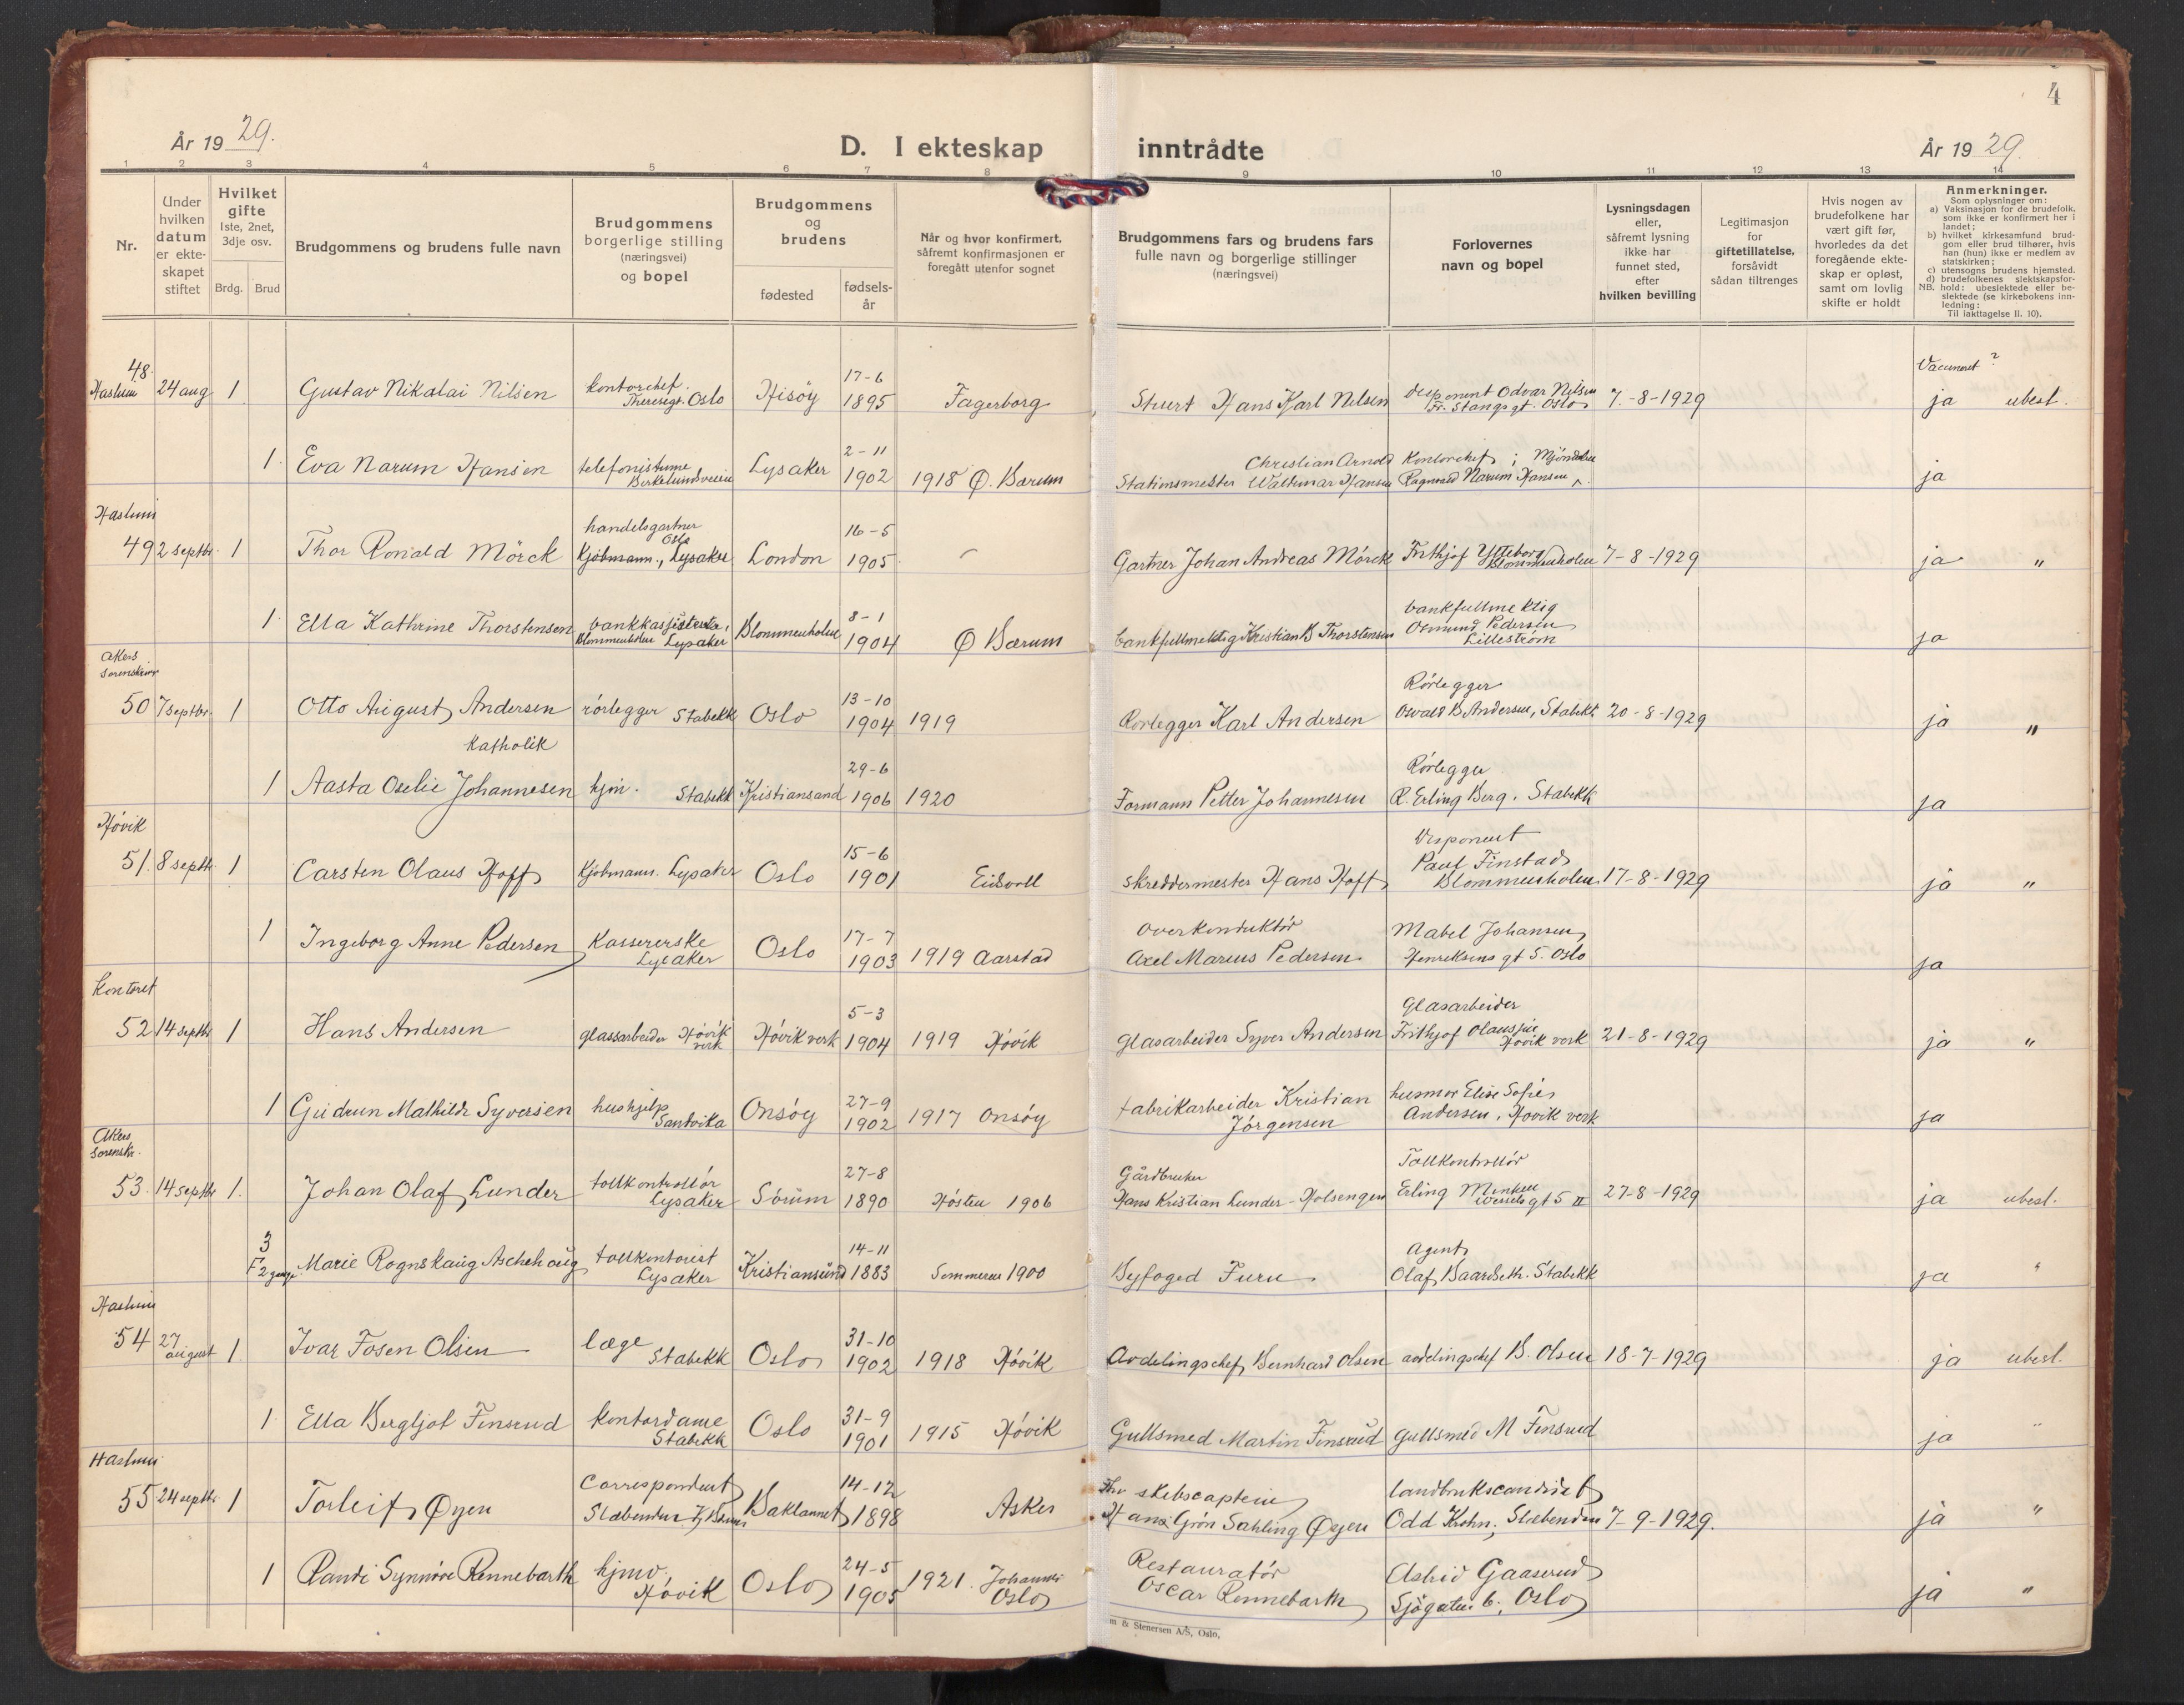 4
År 1929.
D. I ekteskap inntrådte
År 1929.
1 2 3 4 5 6 7 8 9 10 11 12 13 14
Nr.
Under hvilken datum er ekte-skapet stiftet
Hvilket gifte
1ste, 2net, 3dje osv.
Brdg. Brud
Brudgommens og brudens fulle navn
Brudgommens borgerlige stilling (næringsvei) og bopel
Brudgommens og brudens
fødested
fødsels-år
Når og hvor konfirmert, såfremt konfirmasjonen er foregått utenfor sognet
Brudgommens fars og brudens fars fulle navn og borgerlige stillinger (næringsvei)
Forlovernes navn og bopel
Lysningsdagen eller, såfremt lysning ikke har funnet sted, efter hvilken bevilling
Legitimasjon for giftetillatelse, forsåvidt sådan tiltrenges
Hvis nogen av brudefolkene har vært gift før, hvorledes da det foregående ekte-skap er opløst, samt om lovlig skifte er holdt
Anmerkninger.
Som oplysninger om:
a) Vaksinasjon for de brudefolk, som ikke er konfirmert her i landet;
b) hvilket kirkesamfund brud-gom eller brud tilhører, hvis han (hun) ikke er medlem av statskirken;
c) utensogns brudens hjemsted.
d) brudefolkenes slektskapsfor-hold: ubeslektede eller be-slektede (se kirkebokens inn-ledning:
NB.
Til iakttagelse II. 10).
Vaccineret?
48. Haslum 24 aug 1 Gustav Nikolai Nilsen kontorchef. Theresegt. Oslo Hisøy 17-6 1895 Fagerborg Stuert Hans Karl Nilsen disponent Odvar Nilsen Fr. Stangsgt. Oslo 7-8-1929 ja ubesl.
1 Eva Narum Hansen telefonistinne Lysaker 2-11 1902 1918 Ø. Bærum Stationsmester Christian Arnold Waldemar Hansen Kontorchef Ragnvald Narum Hansen ja
Haslum
49 2 septbr. 1 Thor Ronald Mörck handelsgartner Oslo Kjöbmann., Lysaker London 16-5 1905 Gartner Johan Andreas Mörck Frithjof Ytteborg Blommenholm 7-8-1929 ja "
1 Ella Kathrine Thorstensen bankkassistente, Blommenholm Lysaker Blommenholm 8-1 1904 Ø Bærum bankfullmektig Kristian B Thorstensen bankfullmektig Osmund Pedersen Lilleström ja
Akers Sorenskriver
50 7 septbr. 1 Otto August Andersen Katholik rörlegger Stabekk Oslo 13-10 1904 1919 Rörlegger Karl Andersen Rörlegger Osvald B Andersen, Stabekk 20-8-1929 ja "
1 Aasta Oselie Johannesen hjm. Stabekk Kristiansand 29-6 1906 1920 Formann Petter Johannesen Rörlegger R. Erling Berg. Stabekk ja
Hövik
51. 8 septbr. 1 Carsten Olaus Hoff Kjöbmann. Lysaker Oslo 15-6 1901 Eidsvoll Skreddermester Hans Hoff Disponent Paul Finstad Blommenholm 17-8-1929 ja "
1 Ingeborg Anne Pedersen Kassererske Lysaker Oslo 17-7 1903 1919 Aarstad Overkonduktör Axel Marius Pedersen Mabel Johansen, Henriksens gt 5. Oslo ja
Kontoret
52 14 septbr 1 Hans Andersen glassarbeider Hövik verk Hövik verk 5-3 1904 1919 Hövik Glasarbeider Syver Andersen Glasarbeider Frithjof Olaussen Hövik verk 21-8-1929 ja "
1 Gudrun Mathilde Syversen hushjelp Sandvika Onsöy 27-9 1902 1917 Onsöy Fabrikarbeider Kristian Jörgensen husmor Elise Sofie Andersen, Hövik verk ja
Akers Sorenskr.
53. 14 septbr 1. Johan Olaf Lunder tollkontrollör Lysaker Sörum 27-8 1890 Hösten 1906 Gårdbruker Hans Kristian Lunder-Holsengen Tollkontrollör Erling Wessels gt 5 II 27-8-1929 ja ubesl.
3 F 2 gange. Marie Rognskaug Aschehoug tollkontorist Lysaker Kristiansund 14-11 1883 Sommeren 1900 Byfoged Furu Agent Olaf Baardseth. Stabekk ja "
Haslum
54 27 august 1. Ivar Fosen Olsen læge Stabekk Oslo 31-10 1902 1918 Hövik Avdelingschef Bernhard Olsen avdelingschef B. Olsen 18-7-1929 ja ubesl.
1 Ella Bergljot Finsrud kontordame Stabekk Oslo 31-9 1901 1915 Hövik Gullsmed Martin Finsrud gullsmed M Finsrud ja "
Haslum
55 24 septbr 1 Torleif Øyen Correspondent Slæbenden Baklannet 14-12 1898 Asker Fhv skibscaptein Hans Grön Sahling Øyen landbrukscandidat Odd Krohn, Slæbenden 7-9-1929. ja "
1 Randi Synnöve Rennebarth hjmv. Hövik Oslo 24-5 1905 1921. Johannes Oslo Restauratör Oscar Rennebarth Astrid Gaaserud Sjögaten 6, Oslo ja "
m & Stenersen A/S, Oslo,